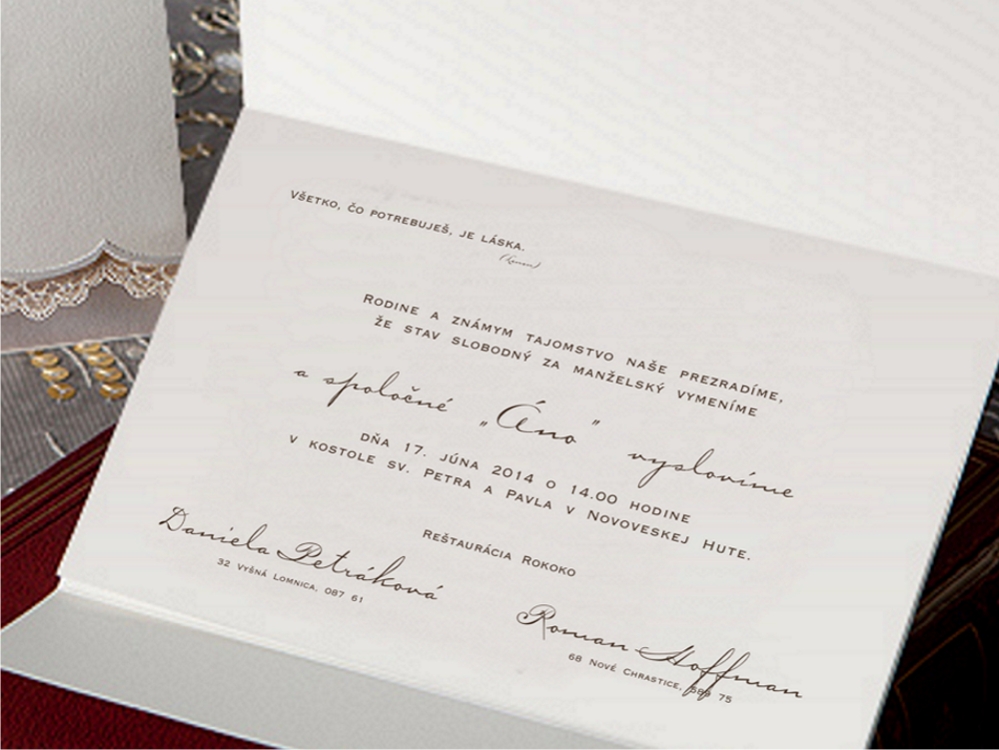 VŠETKO, ČO POTREBUJEŠ, JE LÁSKA.
(Roman)
RODINE A ZNÁMYM TAJOMSTVO NAŠE PREZRADÍME,
ŽE STAV SLOBODNÝ ZA MANŽELSKÝ VYMENÍME
a spoločné „Áno” vyslovíme
DŇA 17. JÚNA 2014 O 14.00 HODINE
V KOSTOLE SV. PETRA A PAVLA V NOVOVESKEJ HUTE.
REŠTAURÁCIA ROKOKO
Daniela Petráková
32 VYŠNÁ LOMNICA, 087 61
Roman Hoffman
68 NOVÉ CHRASTICE, 75